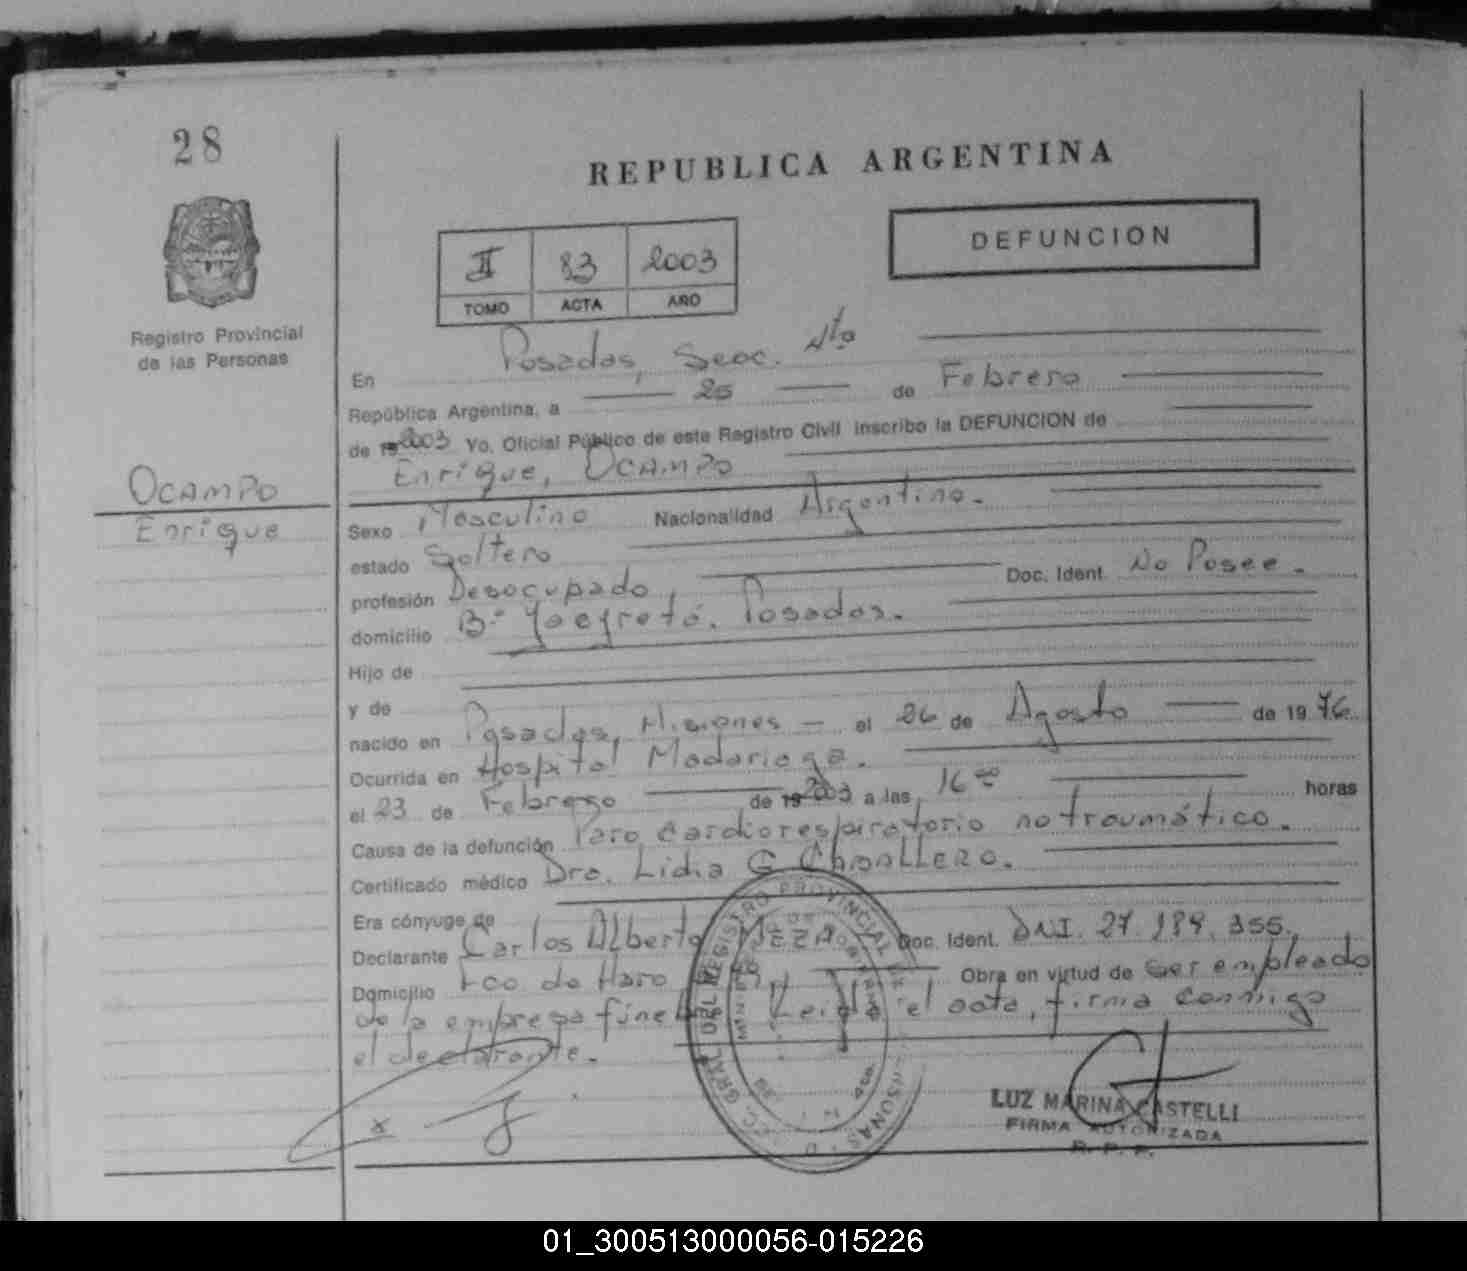 28
REPUBLICA ARGENTINA
DEFUNCION
II 83 2003
TOMO ACTA AÑO
Registro Provincial
de las Personas
En Posadas, Secc. 4ta
República Argentina, a 25 de Febrero
de 19 2003 Yo, Oficial Público de este Registro Civil inscribo la DEFUNCION de
Enrique, OCAMPO
OCAMPO
Enrique
Sexo Masculino Nacionalidad Argentina.
estado Soltero
profesión Desocupado, Doc. Ident. No Posee.
domicilio Bº Yacyretá. Posadas.
Hijo de
y de
nacido en Posadas, Misiones - el 26 de Agosto de 1976
Ocurrida en Hospital Madariaga.
el 23 de Febrero de 19 2003 a las 16 00 horas
Causa de la defunción Paro cardiorespiratorio no traumático.
Certificado médico Dra. Lidia G CABALLERO.
Era cónyuge de
Declarante Carlos Alberto MEZA Doc. Ident. DNI. 27.189.355.
Domicilio Fco de Haro Obra en virtud de ser empleado
de la empresa fúnebre Leída el acta, firma conmigo
el declarante.
LUZ MARINA CASTELLI
FIRMA AUTORIZADA
R. P. P.
01_300513000056-015226